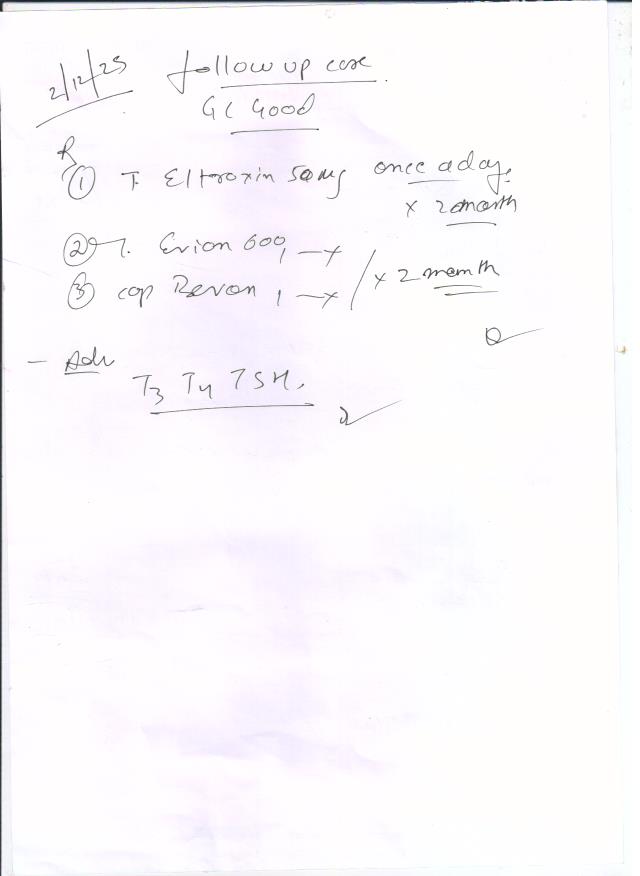 2/12/25 follow up case
GC Good
R
① T. Eltroxin 50mg once a day.
x 2 month
② T. Evion 600, —x
③ cap Revon, —x / x 2 month
- Adv
T3 T4 TSH.